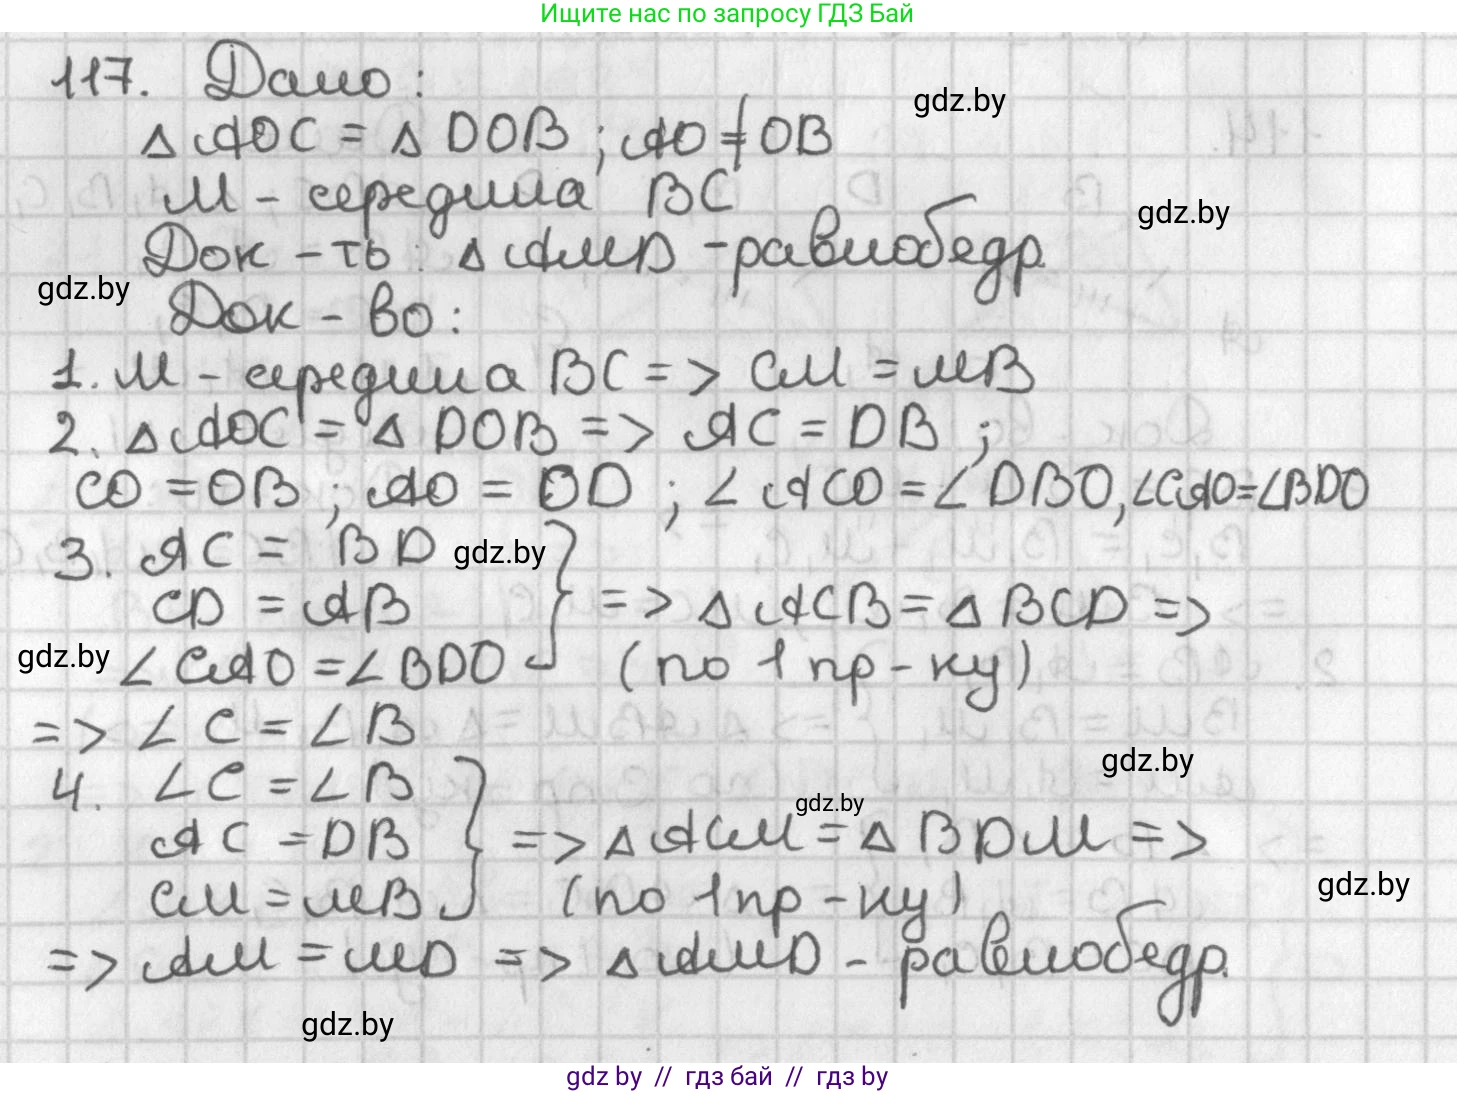 Ищите нас по запросу ГДЗ Бай
117. Дано:
△AOC = △DOB; AO ≠ OB
M - середина BC
Док-ть: △AMD - равнобедр.
Док-во:
1. M - середина BC => CM = MB
2. △AOC = △DOB => AC = DB;
CO = OB; AO = OD; ∠ACO = ∠DBO, ∠CAO = ∠BDO
3. AC = BD
CD = AB
∠CAO = ∠BDO
=> △ACB = △BCD =>
(по 1 пр-ку)
=> ∠C = ∠B
4. ∠C = ∠B
AC = DB
CM = MB
=> △ACM = △BDM =>
(по 1 пр-ку)
=> AM = MD => △AMD - равнобедр.
gdz.by
gdz.by
gdz.by
gdz.by
gdz.by
gdz.by
gdz.by
gdz.by
gdz.by
gdz by // гдз бай // гдз by